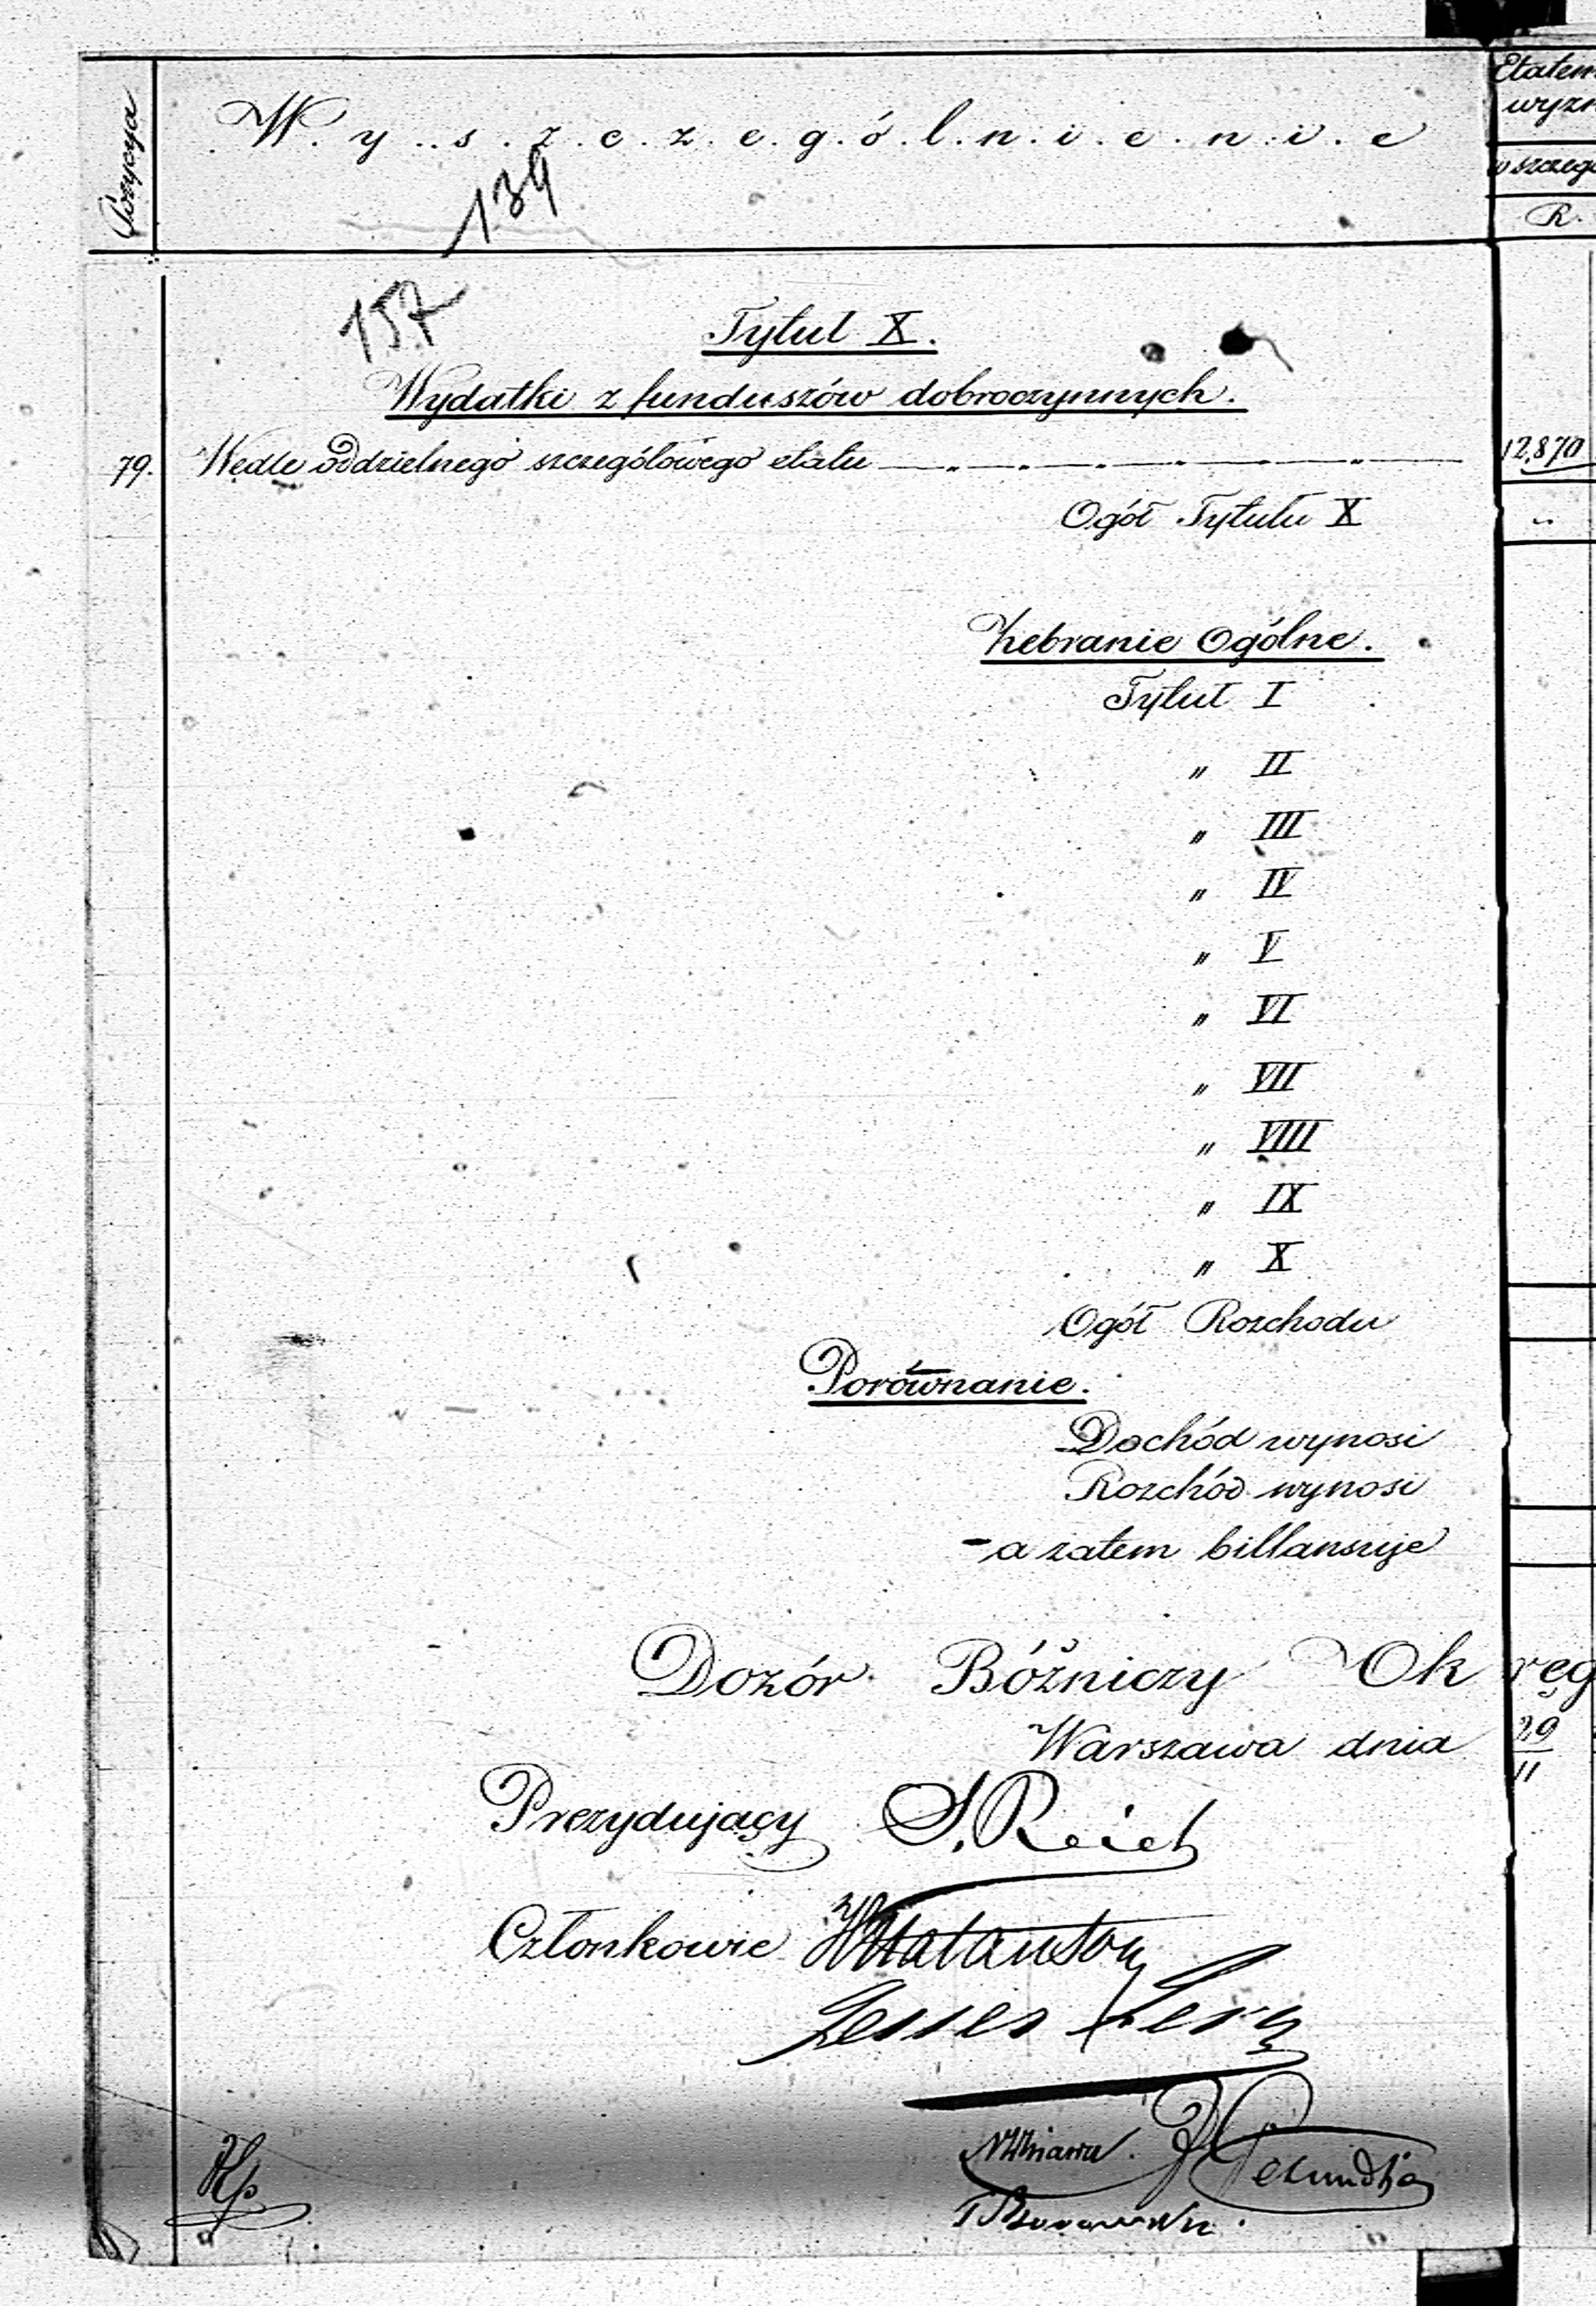 Pozycya
Wyszczególnienie
Etatem
wyzn
w szczegó
R.
139
157
Tytuł X.
Wydatki z funduszów dobroczynnych.
79. Wedle oddzielnego szczegółowego etatu — „ — „ — „ — „ — „ — „ — 12,870
Ogół Tytułu X „
Zebranie Ogólne.
Tytuł I
„ II
„ III
„ IV
„ V
„ VI
„ VII
„ VIII
„ IX
„ X
Ogół Rozchodu
Porównanie.
Dochód wynosi
Rozchód wynosi
- a zatem billansuje
Dozór Bóźniczy Okręg
Warszawa dnia 29
11
Prezydujący S. Reich
Członkowie Natanson
Lesser Levy